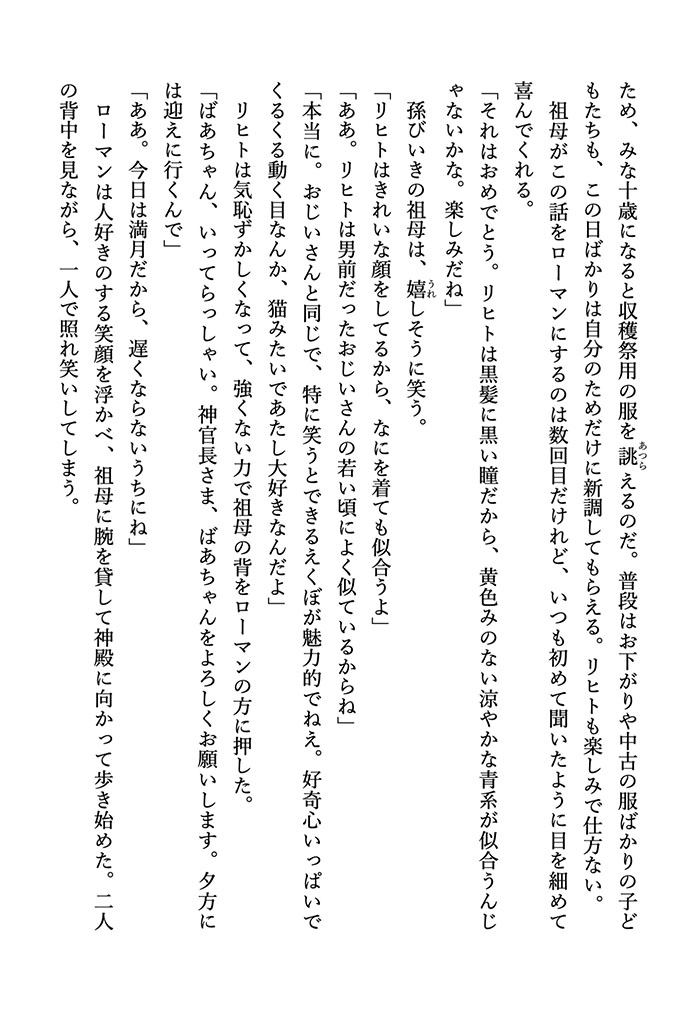 ため、みな十歳になると収穫祭用の服を誂えるのだ。普段はお下がりや中古の服ばかりの子ど
もたちも、この日ばかりは自分のためだけに新調してもらえる。リヒトも楽しみで仕方ない。
　祖母がこの話をローマンにするのは数回目だけれど、いつも初めて聞いたように目を細めて
喜んでくれる。
「それはおめでとう。リヒトは黒髪に黒い瞳だから、黄色みのない涼やかな青系が似合うんじ
ゃないかな。楽しみだね」
　孫びいきの祖母は、嬉しそうに笑う。
「リヒトはきれいな顔をしてるから、なにを着ても似合うよ」
「ああ。リヒトは男前だったおじいさんの若い頃によく似ているからね」
「本当に。おじいさんと同じで、特に笑うとできるえくぼが魅力的でねえ。好奇心いっぱいで
くるくる動く目なんか、猫みたいであたし大好きなんだよ」
　リヒトは気恥ずかしくなって、強くない力で祖母の背をローマンの方に押した。
「ばあちゃん、いってらっしゃい。神官長さま、ばあちゃんをよろしくお願いします。夕方に
は迎えに行くんで」
「ああ。今日は満月だから、遅くならないうちにね」
　ローマンは人好きのする笑顔を浮かべ、祖母に腕を貸して神殿に向かって歩き始めた。二人
の背中を見ながら、一人で照れ笑いしてしまう。